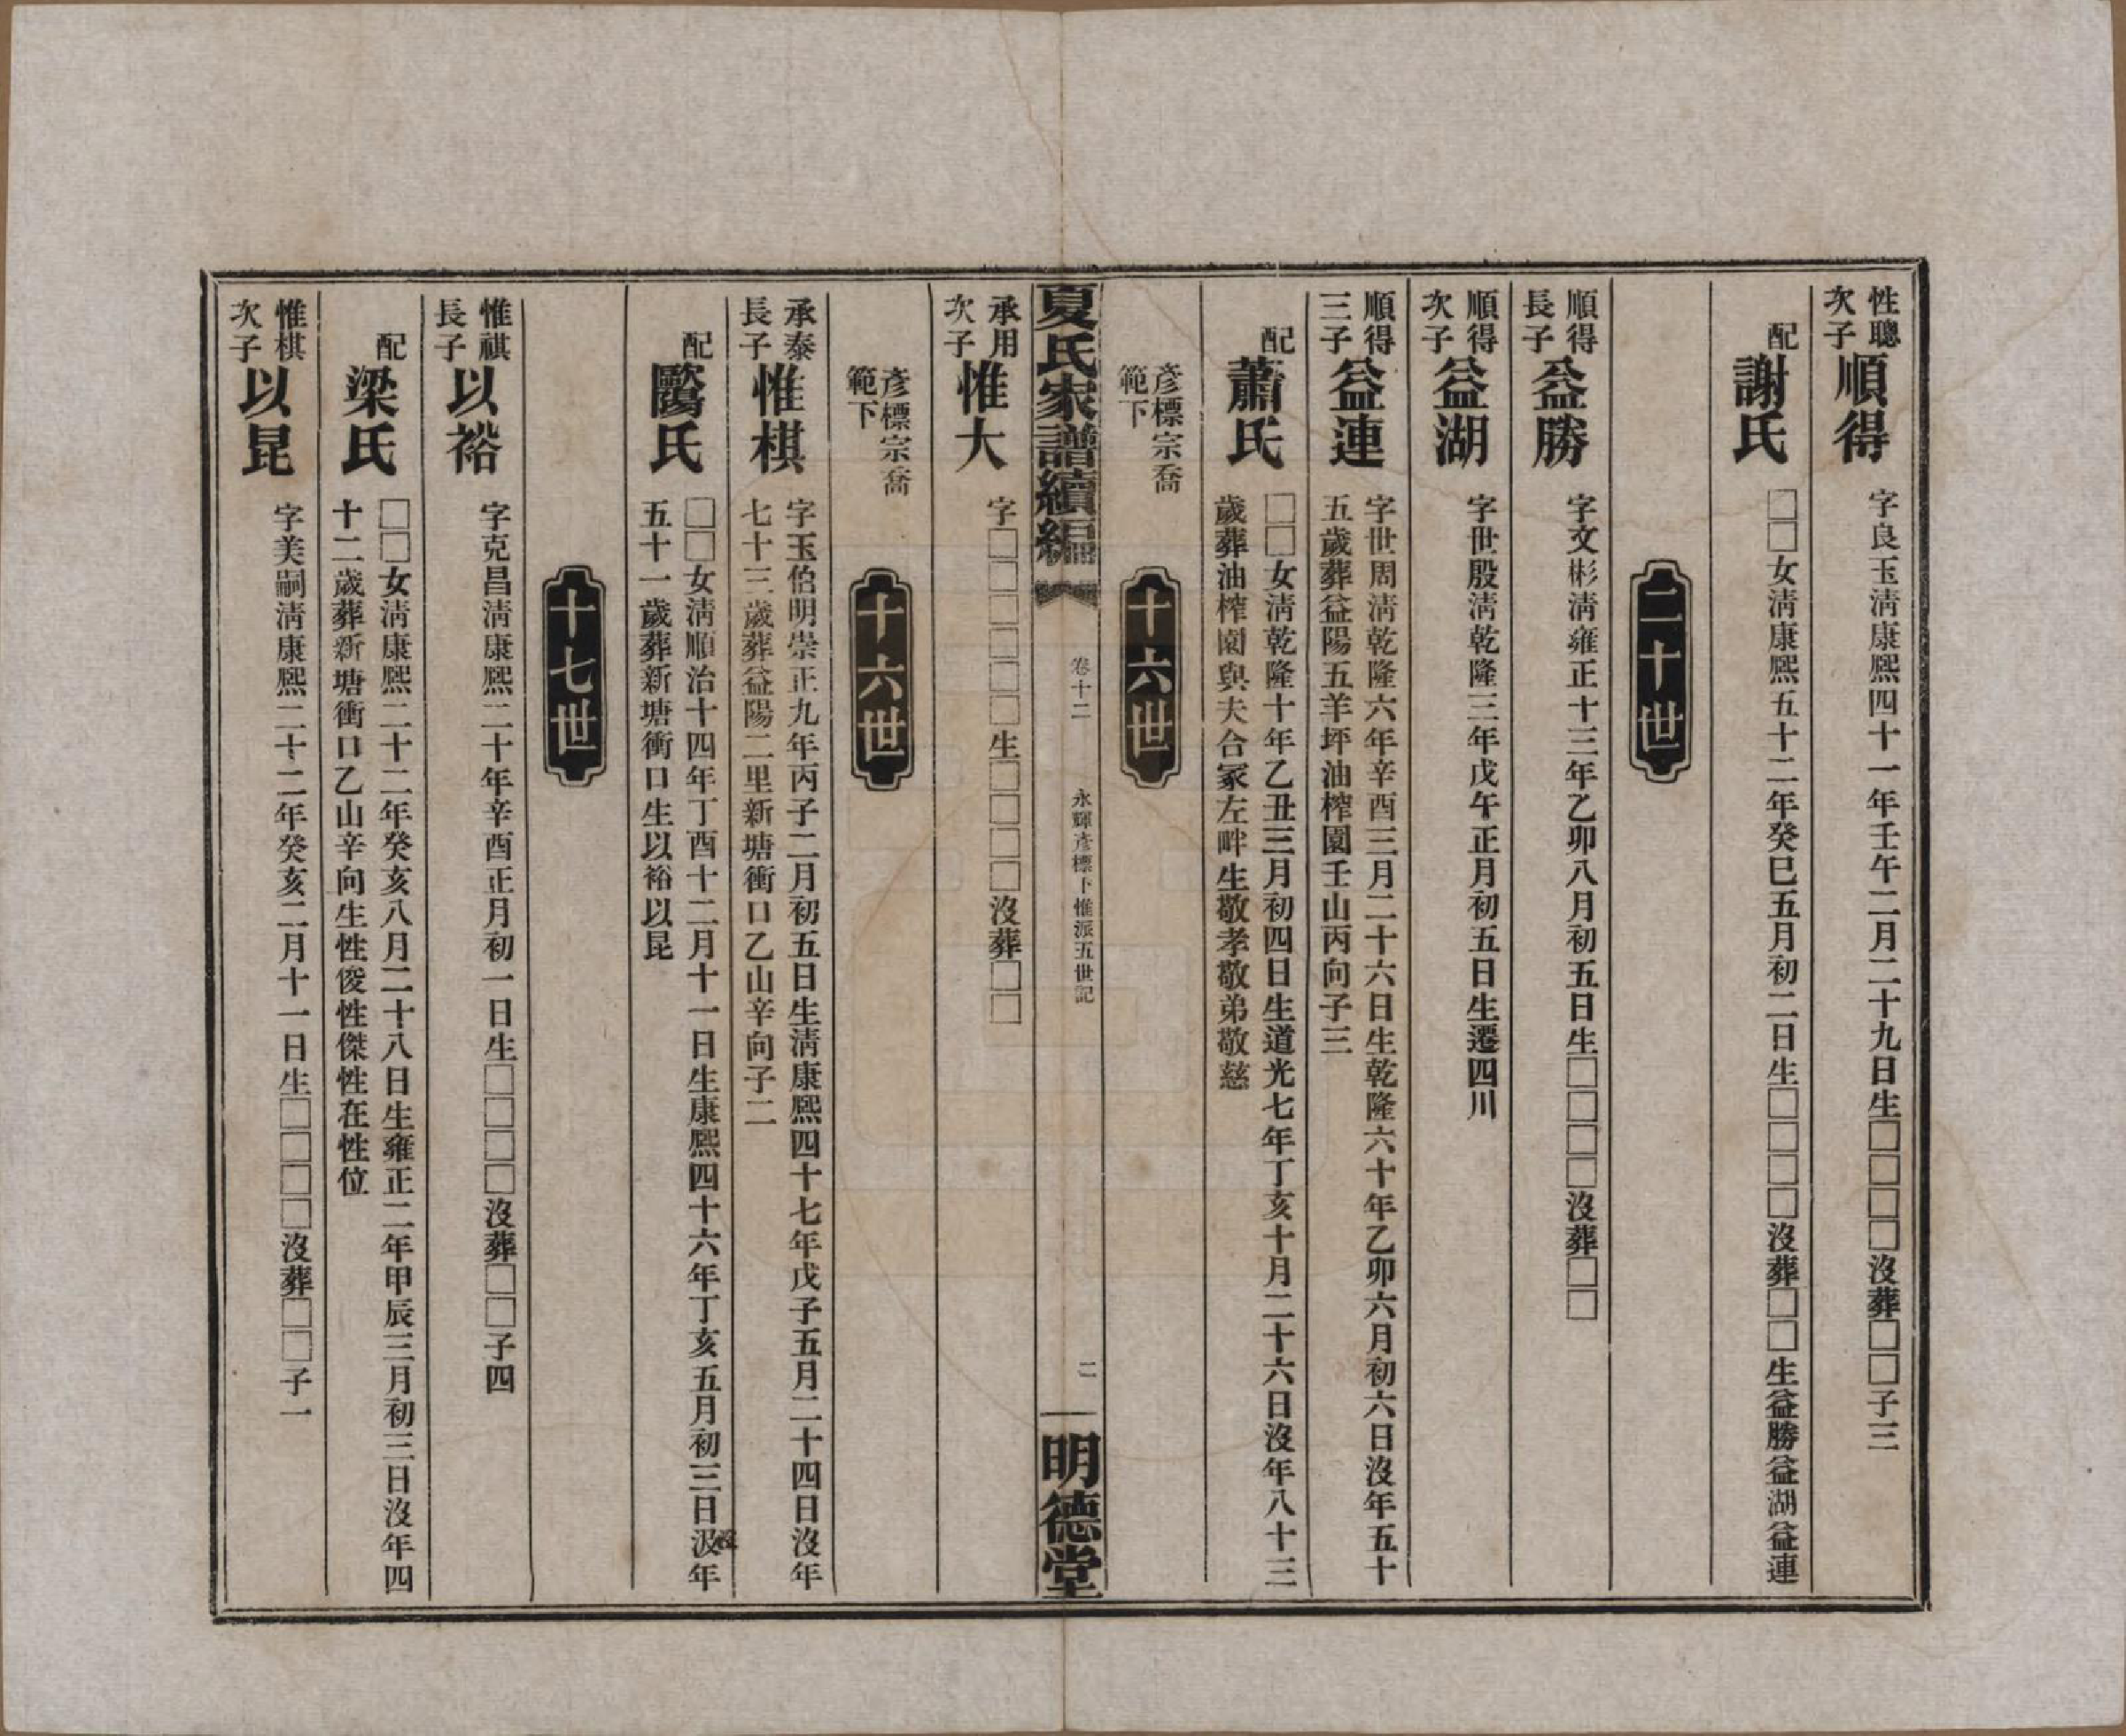 性聰次子 順得 字良玉淸康熙四十一年壬午二月二十九日生□□□□沒葬□□子三
配 謝氏 □□女淸康熙五十二年癸巳五月初二日生□□□□沒葬□□生益勝益湖益連
二十世
順得長子 益勝 字文彬淸雍正十三年乙卯八月初五日生□□□□沒葬□□
順得次子 益湖 字世殷淸乾隆三年戊午正月初五日生遷四川
順得三子 益連 字世周淸乾隆六年辛酉三月二十六日生乾隆六十年乙卯六月初六日沒年五十
五歲葬益陽五羊坪油榨園壬山丙向子三
配 蕭氏 □□女淸乾隆十年乙丑三月初四日生道光七年丁亥十月二十六日沒年八十三
歲葬油榨園與夫合冢左畔生敬孝敬弟敬慈
彥標宗喬範下 十六世
夏氏家譜續編 卷十二 永輝彥標下惟派五世記 二 明德堂
承用次子 惟大 字□□□□□□生□□□□沒葬□□
彥標宗喬範下 十六世
承泰長子 惟棋 字玉伯明崇正九年丙子二月初五日生淸康熙四十七年戊子五月二十四日沒年
七十三歲葬益陽二里新塘衝口乙山辛向子二
配 歐陽氏 □□女淸順治十四年丁酉十二月十一日生康熙四十六年丁亥五月初三日沒年
五十一歲葬新塘衝口生以裕以昆
十七世
惟祺長子 以裕 字克昌淸康熙二十年辛酉正月初一日生□□□□沒葬□□子四
配 梁氏 □□女淸康熙二十二年癸亥八月二十八日生雍正二年甲辰三月初三日沒年四
十二歲葬新塘衝口乙山辛向生性俊性傑性在性位
惟棋次子 以昆 字美嗣淸康熙二十二年癸亥二月十一日生□□□□沒葬□□子一